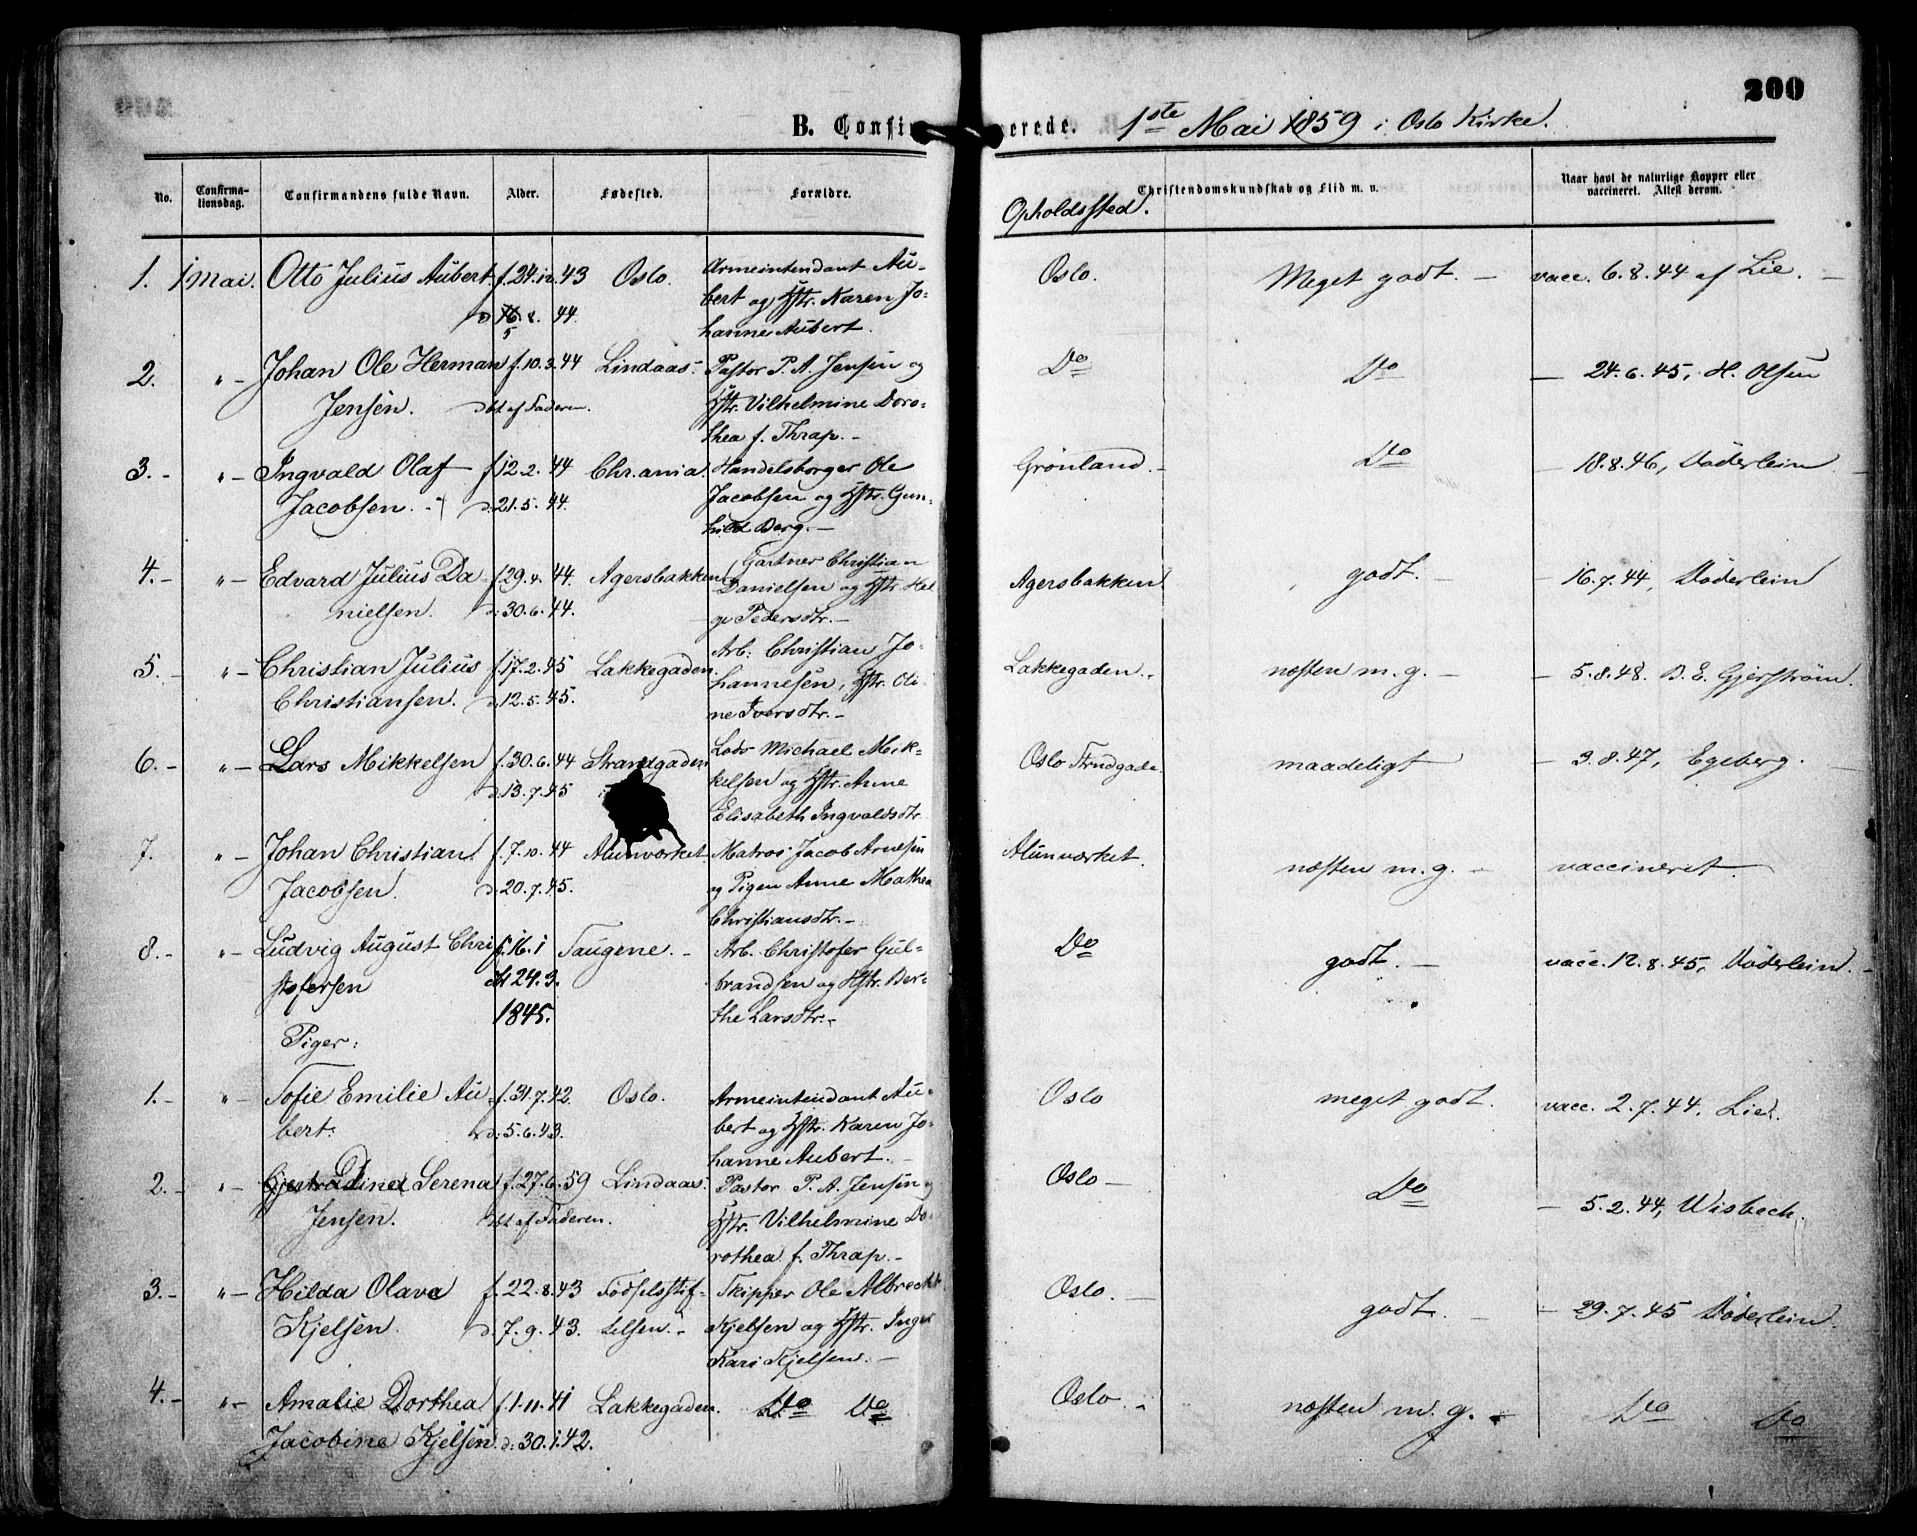 200
B. Confi erede. 1ste Mai 1859 i Oslo Kirke.
No. Confirma-tionsdag. Confirmandens fulde Navn. Alder. Fødested. Forældre. Christendomskundskab og Flid m. v. Naar havt de naturlige Kopper eller vaccineret. Attest derom.
Opholdssted.
1. 1 Mai. Otto Julius Aubert f. 24.12.43 Oslo. Armeintendant Au- Oslo. Meget godt. — vacc. 6.8.44 af Lie. —
bert og Hstr. Karen Jo-
d. 8. 44. hanne Aubert.
5
2. " — Johan Ole Herman f. 10.3.44 Lindaas. Pastor P. A. Jensen og Do Do — 24.6.45, H. Olsen
Jensen. dbt af Faderen. Hstr. Vilhelmine Doro-
thea f. Thrap. —
3. — " — Ingvald Olaf f. 12.2.44 Chr.ania. Handelsborger Ole Grønland. — Do — 18.8.46, Döderlein
Jacobsen. — d. 21.5.44. Jacobsen og Hstr. Gun-
hild Berg. —
4. — " — Edvard Julius Da- f. 29.4.44. Agersbakken Gartner Christian Agersbakken godt. — — 16.7.44, Döderlein
nielsen. d. 30.6.44. Danielsen og Hstr. Hel
ge Pedersdtr. —
5. — " — Christian Julius f. 17.2.45 Lakkegaden. Arb. Christian Jo- Lakkegaden. næsten m.g. — — 5.8.48. D. E. Gjerstrøm.
Christiansen. d. 12.5.45. hannesen, Hstr. Oli-
ne Iversdtr. —
6. — " — Lars Mikkelsen f. 30.6.44 Strandgaden Lods Michael Mik- Oslo Strndgade. maadeligt — 3.8.47, Egeberg. —
d. 13.7.45 kelsen og Hstr. Anne
Elisabeth Ingvaldsdtr.
7. " — Johan Christian f. 7.10.44 Alunværket Matros Jacob Arnesen Alunværket. næsten m.g. — vaccineret.
Jacobsen. d. 20.7.45. og Pigen Anne Mathea
Christiansdtr. —
8. — " — Ludvig August Chri f. 16.1 Taugene. — Arb. Christofer Gul- Do godt. — vacc. 12.8.45, Döderlein. —
stofersen dbt 24.3. brandsen og Hstr. Ber-
1845. the Larsdtr. —
Piger:
1. — " — Sofie Emilie Au- f. 31.7.42. Oslo. Armeintendant Au- Oslo meget godt. vacc. 2.7.44. Lie.
bert. d. 5.6.43. bert og Hstr. Karen Jo-
hanne Aubert. —
2. — " — Dine Serena f. 27.6.59 Lindaas. Pastor P. A. Jensen og Oslo — Do — 5.2.44, Wisbech.
Jensen. dbt af Faderen. Hstr. Vilhelmine Do-
rothea f. Thrap. —
3. — " — Hilda Olava f. 22.8.43 Fødselsstif- Skipper Ole Albrecht Oslo. — godt. — — 29.7.45 Döderlein.
Kjelsen. d. 7.9.43. telsen. — Kjelsen og Hstr. Inger
Kari Kjelsen. —
4. — " — Amalie Dorthea f. 1.11.41 Lakkegaden. Do Do Oslo. næsten m.g. — Do Do
Jacobine Kjelsen. d. 30.1.42.